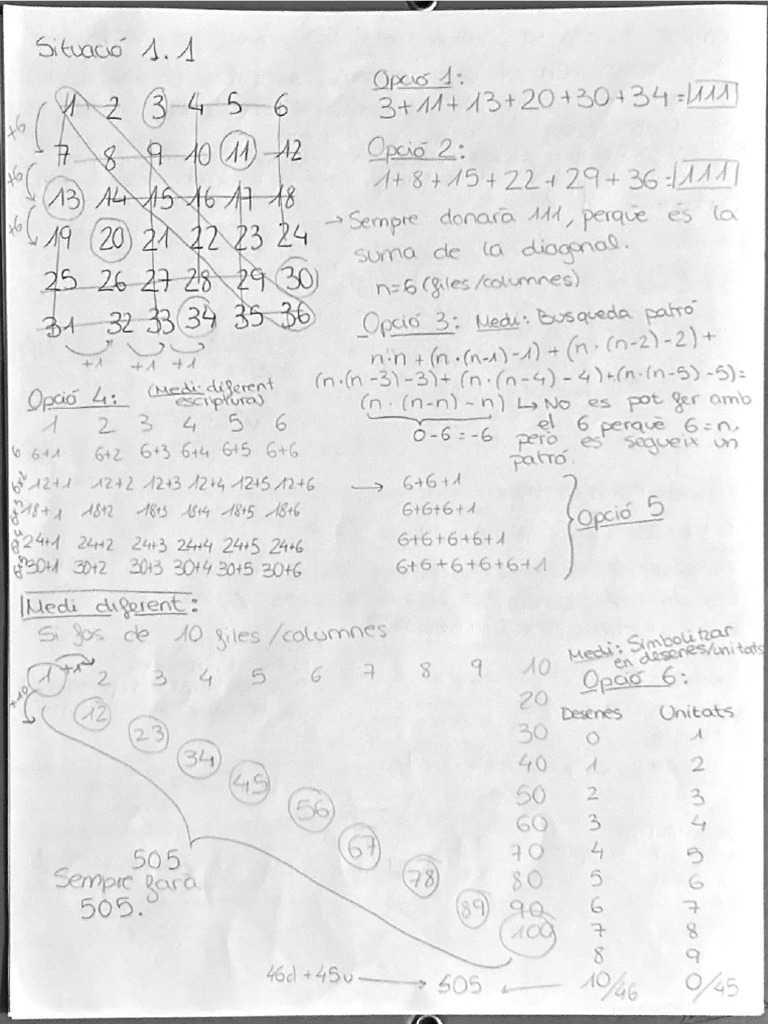 Situació 1.1
1 2 3 4 5 6
+6
7 8 9 10 11 12
+6
13 14 15 16 17 18
+6
19 20 21 22 23 24
25 26 27 28 29 30
31 32 33 34 35 36
+1 +1 +1
Opció 1:
3+11+13+20+30+34=111
Opció 2:
1+8+15+22+29+36=111
→ Sempre donarà 111, perquè és la
suma de la diagonal.
n=6 (files/columnes)
Opció 3: Medi: Busqueda patró
n·n + (n·(n-1)-1) + (n·(n-2)-2) +
(n·(n-3)-3) + (n·(n-4)-4)+(n·(n-5)-5)=
(n·(n-n)-n) ↳ No es pot fer amb
0-6=-6
el 6 perquè 6=n,
però es segueix un
patró.
Opció 4: (Medi: diferent
escriptura)
1 2 3 4 5 6
6 6+1 6+2 6+3 6+4 6+5 6+6
6·2 12+1 12+2 12+3 12+4 12+5 12+6 → 6+6+1
6·3 18+1 18+2 18+3 18+4 18+5 18+6 6+6+6+1
6·4 24+1 24+2 24+3 24+4 24+5 24+6 6+6+6+6+1
6·5 30+1 30+2 30+3 30+4 30+5 30+6 6+6+6+6+6+1
Opció 5
Medi diferent:
Si fos de 10 files/columnes
1 +1 2 3 4 5 6 7 8 9 10
+10
12 20
23 30
34 40
45 50
56 60
67 70
78 80
89 90
100
505
Sempre farà
505.
Medi: Simbolitzar
en desenes/unitats
Opció 6:
Desenes Unitats
0 1
1 2
2 3
3 4
4 5
5 6
6 7
7 8
8 9
10/46 0/45
46d + 45u → 505 ←